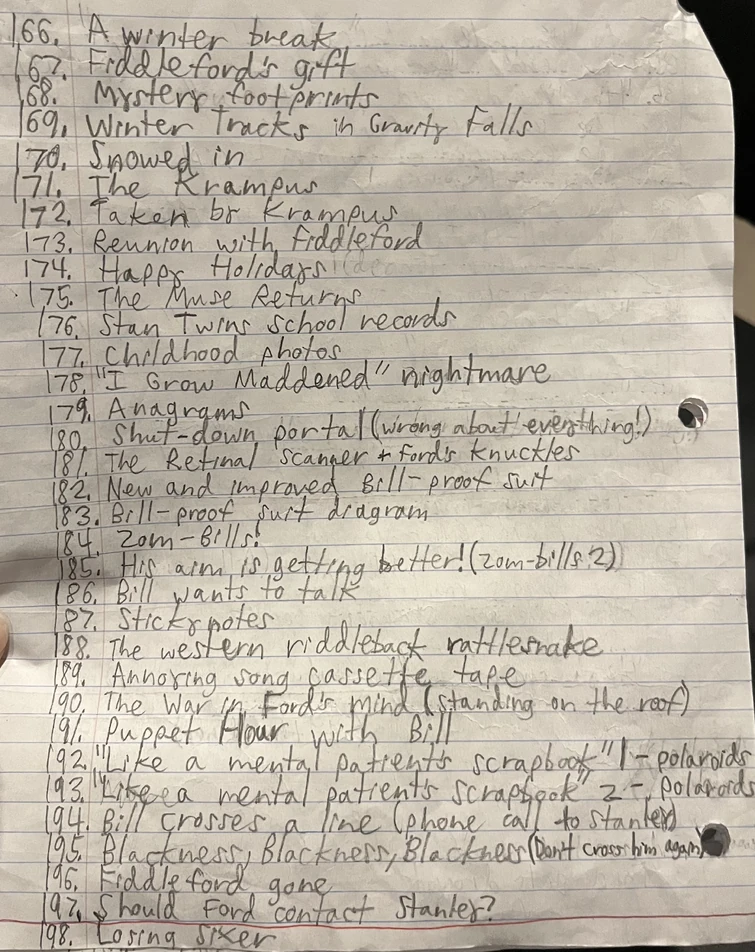 166. A winter break
167. Fiddleford's gift
168. Mystery footprints
169. Winter Tracks in Gravity Falls
170. Snowed in
171. The Krampus
172. Taken by Krampus
173. Reunion with Fiddleford
174. Happy Holidays
175. The Muse Returns
176. Stan Twins school records
177. Childhood photos
178. "I Grow Maddened" nightmare
179. Anagrams
180. Shut-down portal (wrong about everything!)
181. The Retinal scanner + Ford's knuckles
182. New and improved Bill-proof suit
183. Bill-proof suit diagram
184. Zom-Bills!
185. His aim is getting better! (zom-bills 2)
186. Bill wants to talk
187. Sticky notes
188. The western riddleback rattlesnake
189. Annoying song cassette tape
190. The War in Ford's mind (standing on the roof)
191. Puppet Hour with Bill
192. "Like a mental patient's scrapbook" 1 - polaroids
193. "Like a mental patient's scrapbook" 2 - polaroids
194. Bill crosses a line (phone call to Stanley)
195. Blackness, Blackness, Blackness (Don't cross him again)
196. Fiddleford gone
197. Should Ford contact Stanley?
198. Losing Sixer